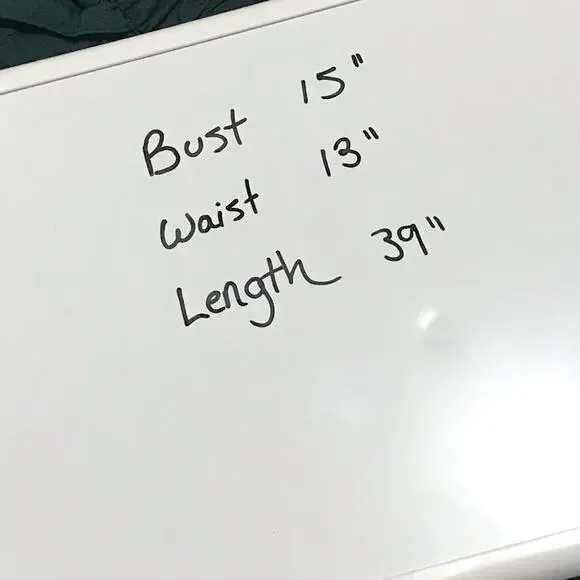 Bust 15"
Waist 13"
Length 39"